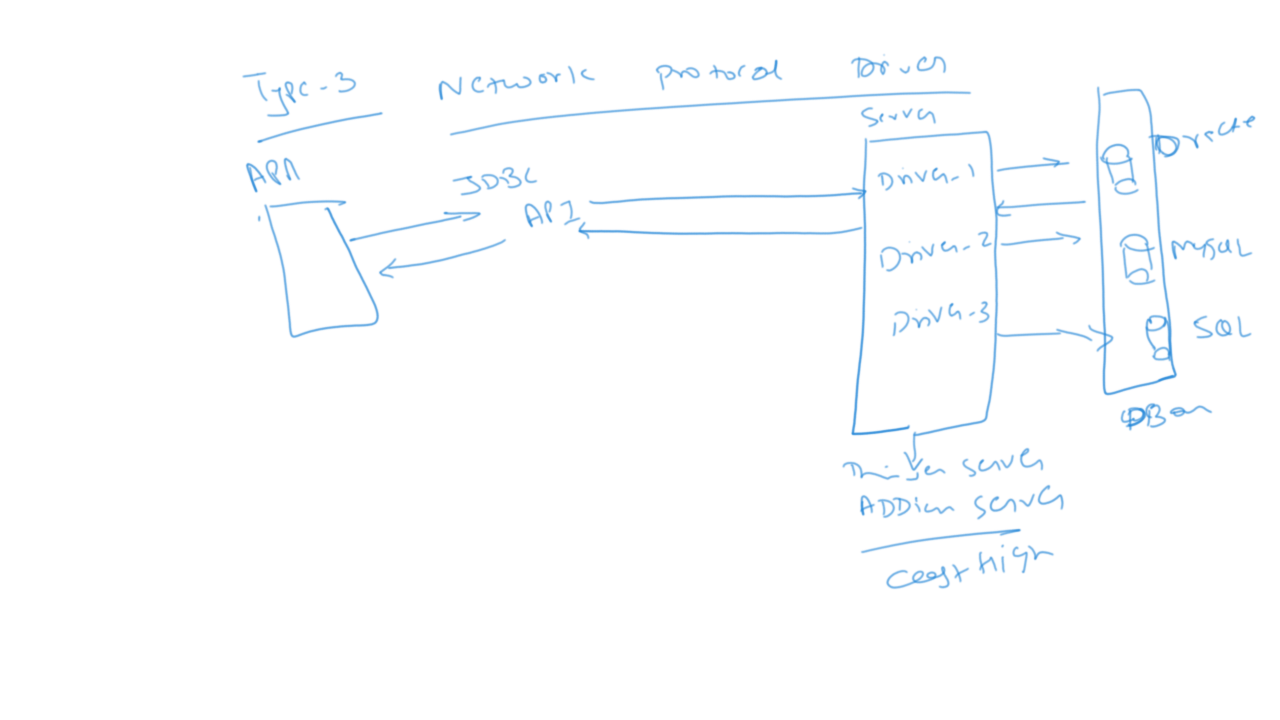 Type-3 Network protocol Driver
Server
APP
JDBC
API
Driver-1
Driver-2
Driver-3
Oracle
MySQL
SQL
server
server
Cost High